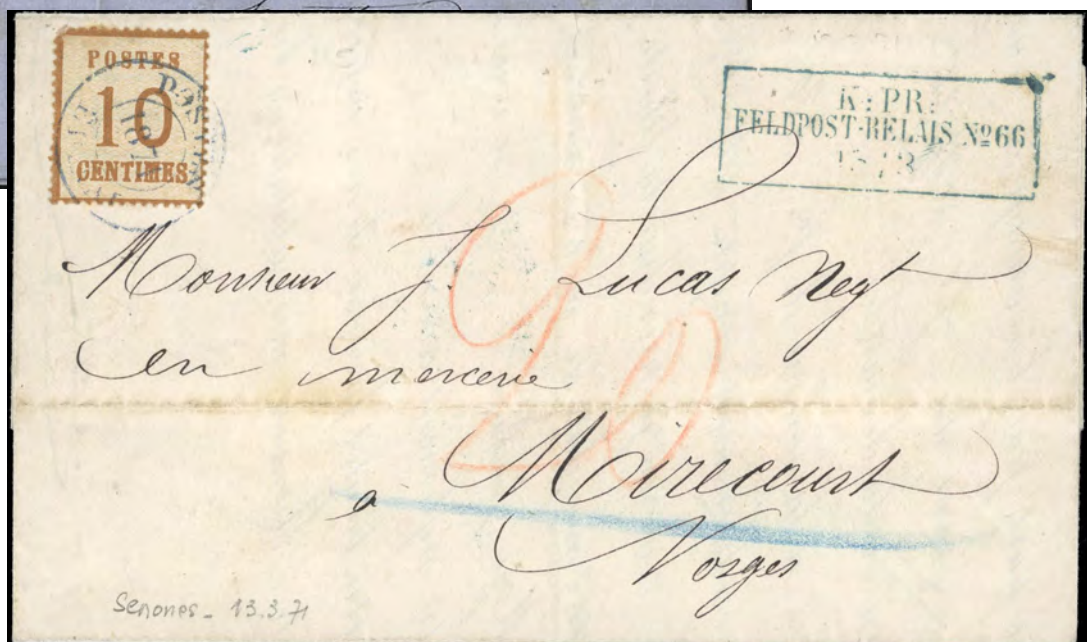 POSTES
10
CENTIMES
1871
K: PR:
FELDPOST-RELAIS No 66
Monsieur J. Lucas Negt
en mercerie
20
à Mirecourt
Vosges
Senones - 13.3.71